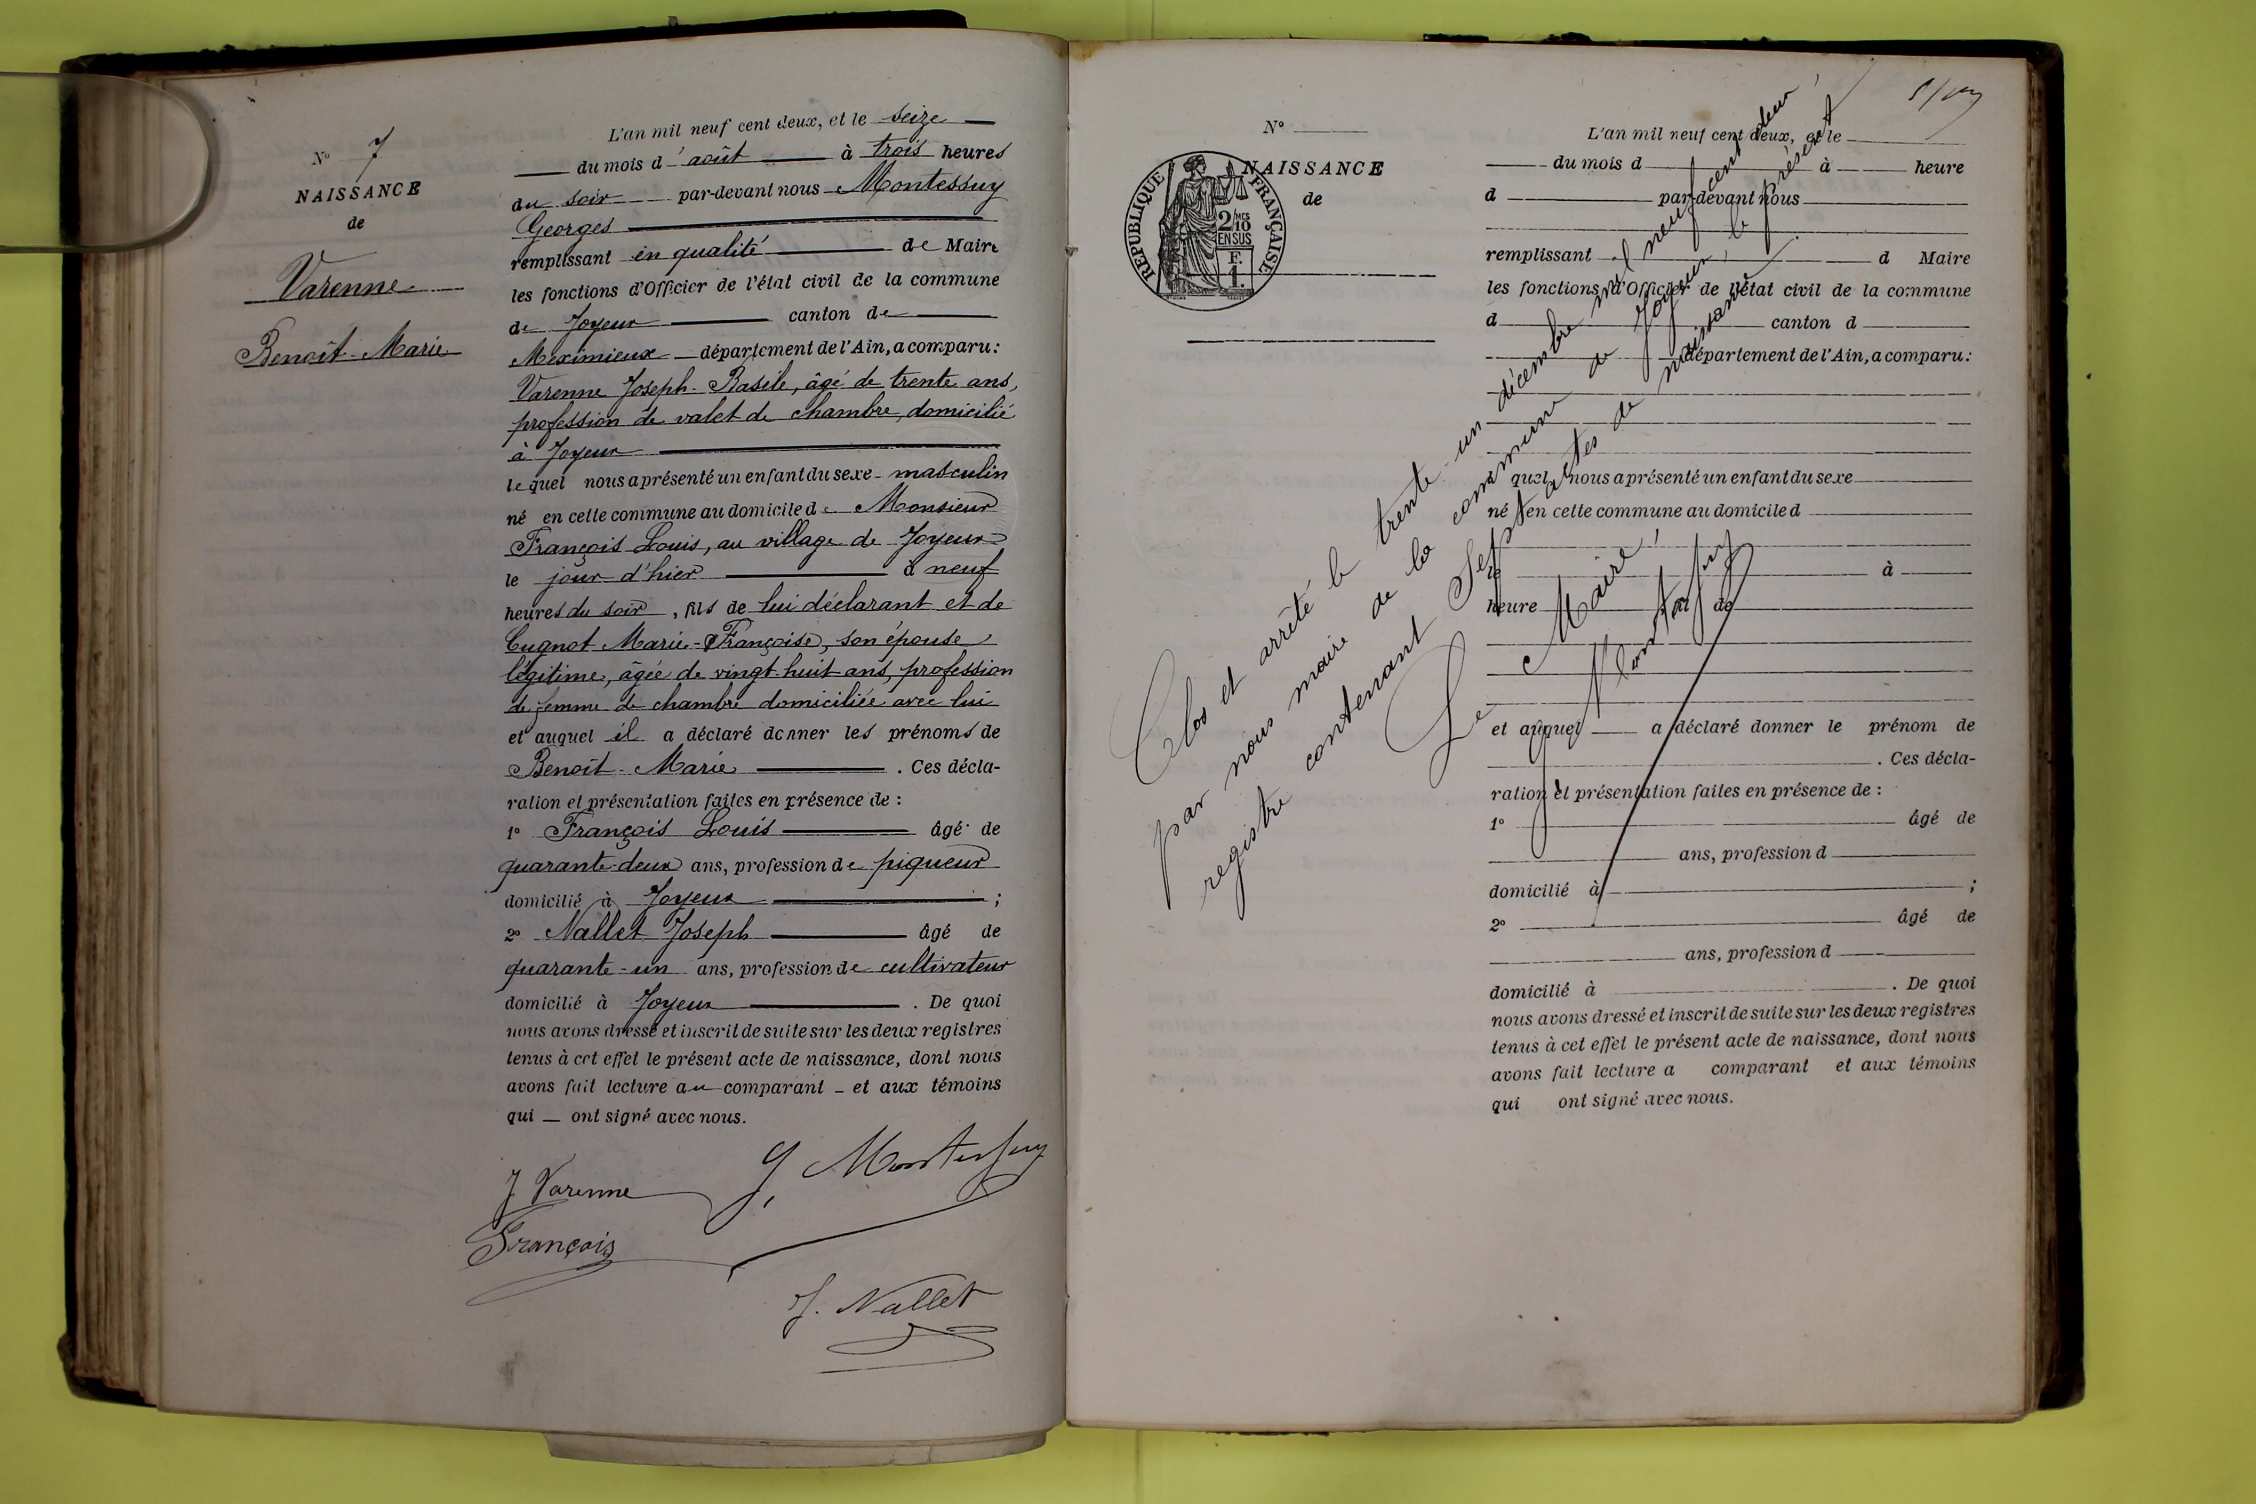 N° 7
NAISSANCE
de
Varenne
Benoît-Marie
L'an mil neuf cent deux, et le seize
du mois d'août à trois heures
du soir par-devant nous Montessuy
Georges
remplissant en qualité de Maire
les fonctions d'Officier de l'état civil de la commune
de Joyeux canton de
Meximieux département de l'Ain, a comparu:
Varenne Joseph-Basile, âgé de trente ans,
profession de valet de chambre, domicilié
à Joyeux
lequel nous a présenté un enfant du sexe masculin
né en cette commune au domicile de Monsieur
François Louis, au village de Joyeux
le jour d'hier à neuf
heures du soir, fils de lui déclarant et de
Cugnot Marie-Françoise, son épouse
légitime, âgée de vingt-huit ans, profession
de femme de chambre domiciliée avec lui
et auquel il a déclaré donner les prénoms de
Benoît-Marie . Ces décla-
ration et présentation faites en présence de :
1° François Louis âgé de
quarante-deux ans, profession de piqueur
domicilié à Joyeux ;
2° Nallet Joseph âgé de
quarante-un ans, profession de cultivateur
domicilié à Joyeux . De quoi
nous avons dressé et inscrit de suite sur les deux registres
tenus à cet effet le présent acte de naissance, dont nous
avons fait lecture au comparant et aux témoins
qui ont signé avec nous.
J Varenne
G, Montessuy
François
J. Nallet
N°
NAISSANCE
de
REPUBLIQUE FRANÇAISE
2/10
EN SUS
F.
1.
L'an mil neuf cent deux, et le
du mois d à heure
d par-devant nous
remplissant d Maire
les fonctions d'Officier de l'état civil de la commune
d canton d
département de l'Ain, a comparu:
quel nous a présenté un enfant du sexe
né en cette commune au domicile d
le à
heure fil de
et auquel a déclaré donner le prénom de
. Ces décla-
ration et présentation faites en présence de :
1° âgé de
ans, profession d
domicilié à ;
2° âgé de
ans, profession d
domicilié à . De quoi
nous avons dressé et inscrit de suite sur les deux registres
tenus à cet effet le présent acte de naissance, dont nous
avons fait lecture a comparant et aux témoins
qui ont signé avec nous.
Clos et arrêté le trente-un décembre mil neuf cent deux
par nous maire de la commune de Joyeux, le présent
registre contenant Sept actes de naissance.
Le Maire,
G, Montessuy